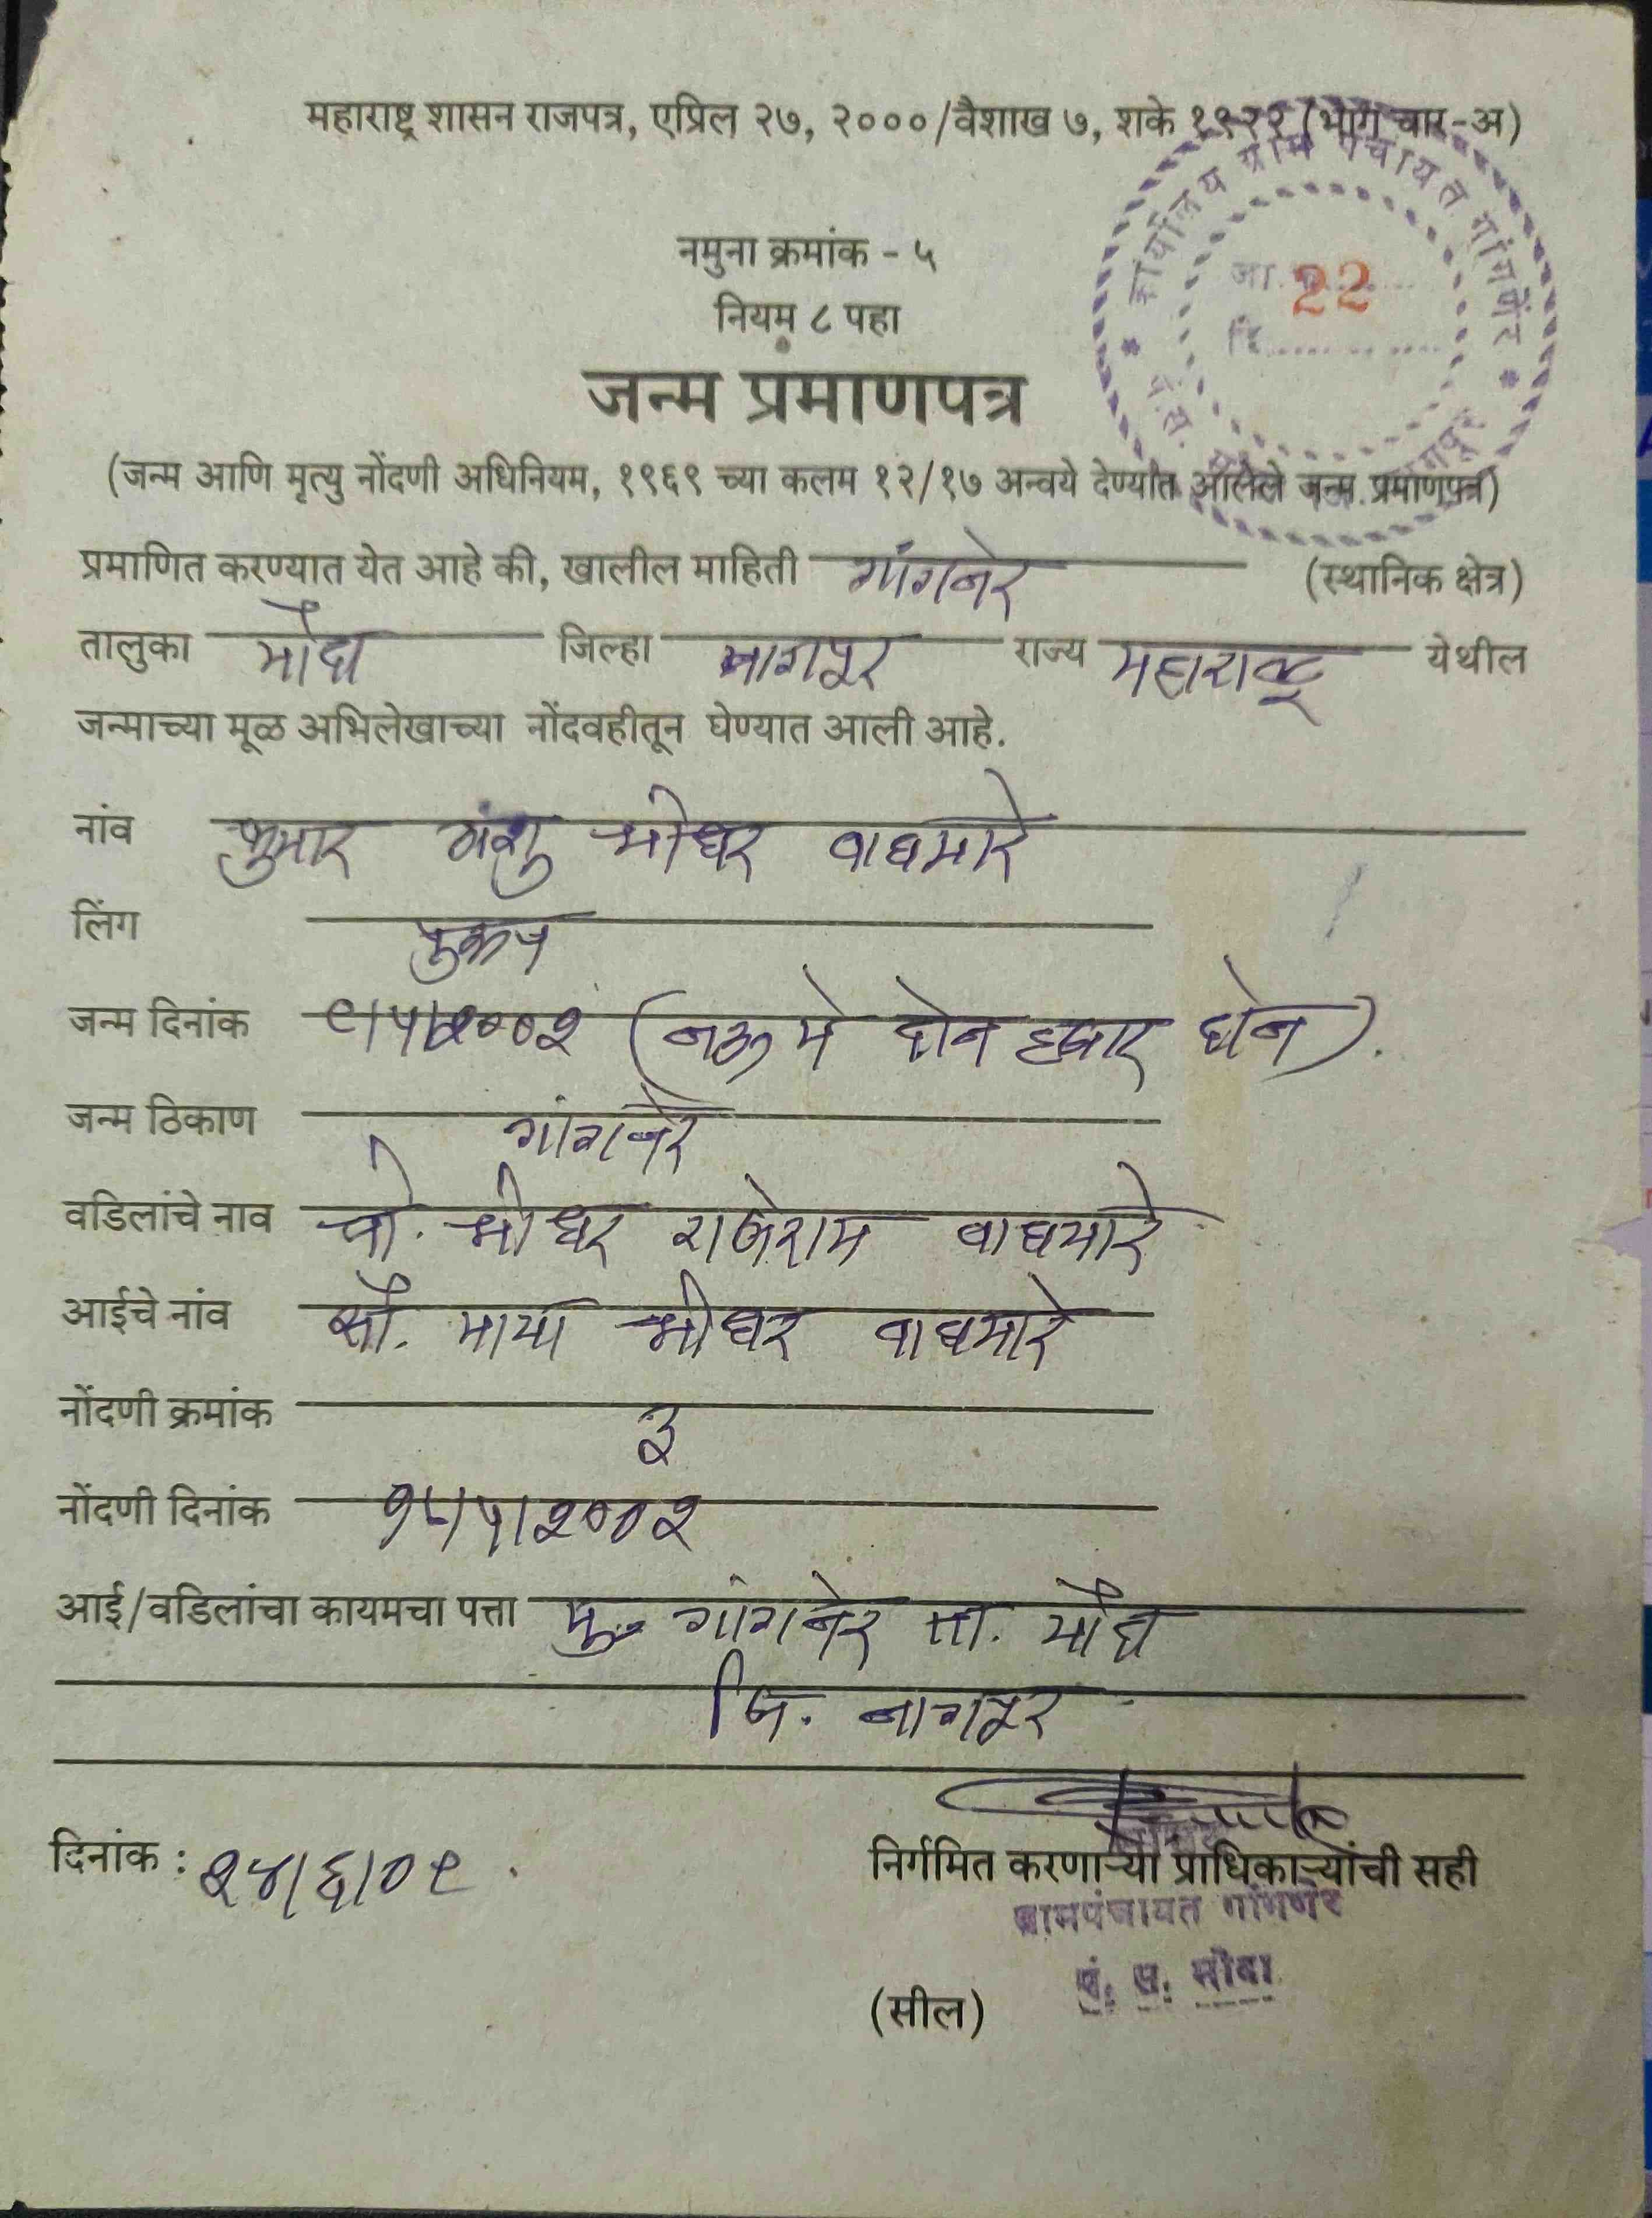 महाराष्ट्र शासन राजपत्र, एप्रिल २७, २०००/वैशाख ७, शके १९२२ (भाग चार-अ)
कार्यालय ग्राम पंचायत गांगनेर
जा. क्र. 22
दि.
नमुना क्रमांक - ५
नियम ८ पहा
जन्म प्रमाणपत्र
(जन्म आणि मृत्यु नोंदणी अधिनियम, १९६९ च्या कलम १२/१७ अन्वये देण्यात आलेले जन्म प्रमाणपत्र)
प्रमाणित करण्यात येत आहे की, खालील माहिती गांगनेर (स्थानिक क्षेत्र)
तालुका मौदा जिल्हा नागपूर राज्य महाराष्ट्र येथील
जन्माच्या मूळ अभिलेखाच्या नोंदवहीतून घेण्यात आली आहे.
नांव कुमार श्रीधर वाघमारे
लिंग पुरूष
जन्म दिनांक ९/५/२००२ (नऊ मे दोन हजार दोन).
जन्म ठिकाण गांगनेर
वडिलांचे नाव श्री. श्रीधर राजेराम वाघमारे
आईचे नांव सौ. माया श्रीधर वाघमारे
नोंदणी क्रमांक ३
नोंदणी दिनांक १८/५/२००२
आई/वडिलांचा कायमचा पत्ता मु. गांगनेर ता. मौदा
जि. नागपूर
दिनांक : २४/६/०९.
निर्गमित करणाऱ्या प्राधिकाऱ्यांची सही
ग्रामपंचायत गांगनेर
पं. स. मौदा
(सील)